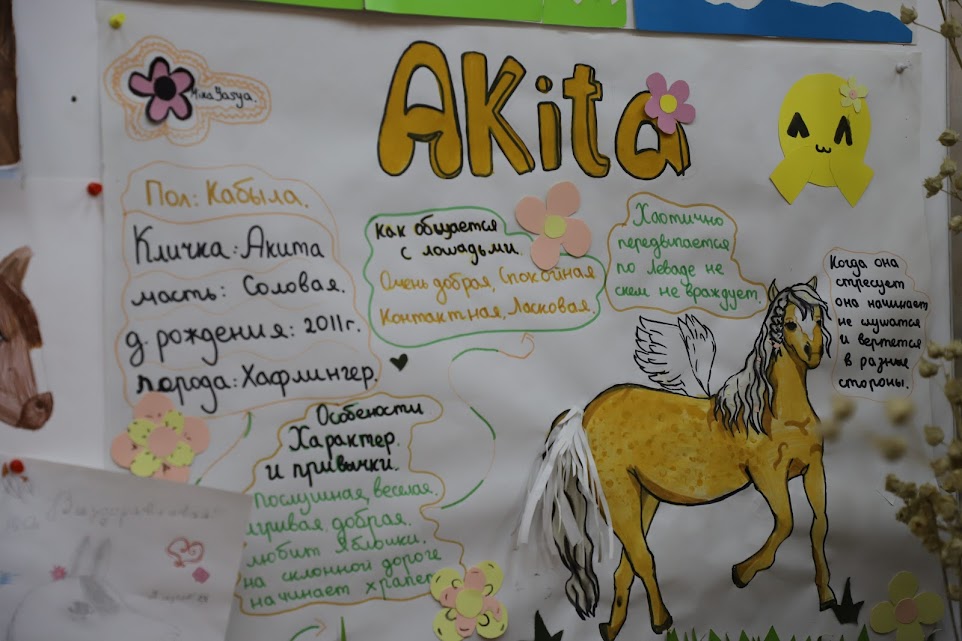 Akita
Mika Yasya.
Пол: Кабыла.
Кличка: Акита
масть: Соловая.
д. рождения: 2011г.
порода: Хафлингер.
как общается
с лошадьми.
Очень добрая, Спокойная
Контактная, Ласковая.
Хаотично
передвипается
по леваде не
скем не враждует.
Когда она
стресует
она начинает
не слушатся
и вертется
в разные
стороны.
Особености
Характер.
и привычки.
Послушная, веселая.
игривая, добрая.
любит яблошки.
на склонной дороге
начинает храпет